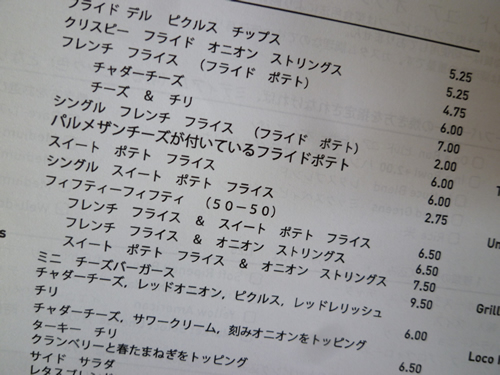 フライド デル ピクルス チップス
クリスピー フライド オニオン ストリングス 5.25
フレンチ フライス （フライド ポテト） 5.25
チャダーチーズ 4.75
チーズ & チリ 6.00
シングル フレンチ フライス （フライド ポテト） 7.00
パルメザンチーズが付いているフライドポテト 2.00
スイート ポテト フライス 6.00
シングル スイート ポテト フライス 6.00
フィフティーフィフティ （50－50） 2.75
フレンチ フライス & スイート ポテト フライス
フレンチ フライス & オニオン ストリングス 6.50
スイート ポテト フライス & オニオン ストリングス 6.50
ミニ チーズバーガース 7.50
チャダーチーズ, レッドオニオン, ピクルス, レッドレリッシュ 9.50
チリ
チャダーチーズ, サワークリーム, 刻みオニオンをトッピング 6.00
ターキー チリ
クランベリーと春たまねぎをトッピング 6.50
サイド サラダ
s
Un
Grill
Loco